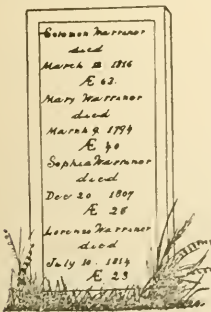 Solomon Warrinor
died
March 1816
Æ 63.
Mary Warrinor
died
March 9. 1794
Æ 40
Sophia Warrinor
died
Dec 20 1807
Æ 26
Lorenzo Warrinor
died
July 10. 1814
Æ 23